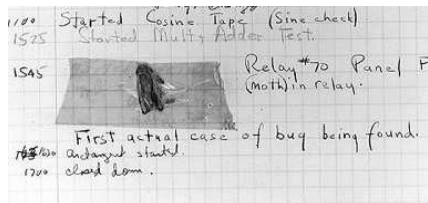 1100 Started Cosine Tape (Sine check)
1525 Started Mult+ Adder Test.
1545 Relay #70 Panel F
(moth) in relay.
First actual case of bug being found.
arctangent started.
1700 closed down.